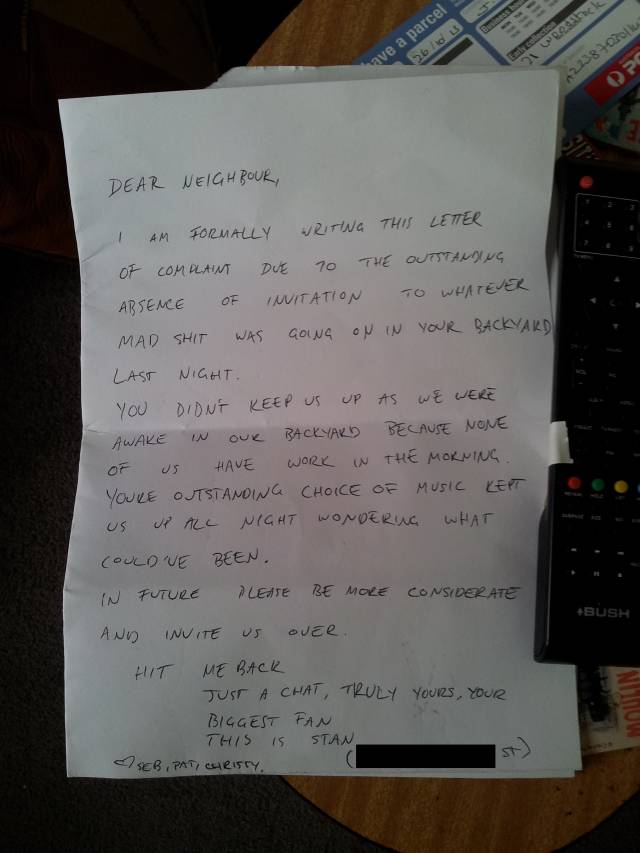 have a parcel
26/10/13
Business hou
Early collection
21 
DEAR NEIGHBOUR,
I AM FORMALLY WRITING THIS LETTER
OF COMPLAINT DUE TO THE OUTSTANDING
ABSENCE OF INVITATION TO WHATEVER
MAD SHIT WAS GOING ON IN YOUR BACKYARD
LAST NIGHT.
YOU DIDN'T KEEP US UP AS WE WERE
AWAKE IN OUR BACKYARD BECAUSE NONE
OF US HAVE WORK IN THE MORNING.
YOURE OUTSTANDING CHOICE OF MUSIC KEPT
US UP ALL NIGHT WONDERING WHAT
COULD'VE BEEN.
IN FUTURE PLEASE BE MORE CONSIDERATE
AND INVITE US OVER.
HIT ME BACK
JUST A CHAT, TRULY YOURS, YOUR
BIGGEST FAN
THIS IS STAN
( ST)
♡ SEB, PAT, CHRISTY.
BUSH